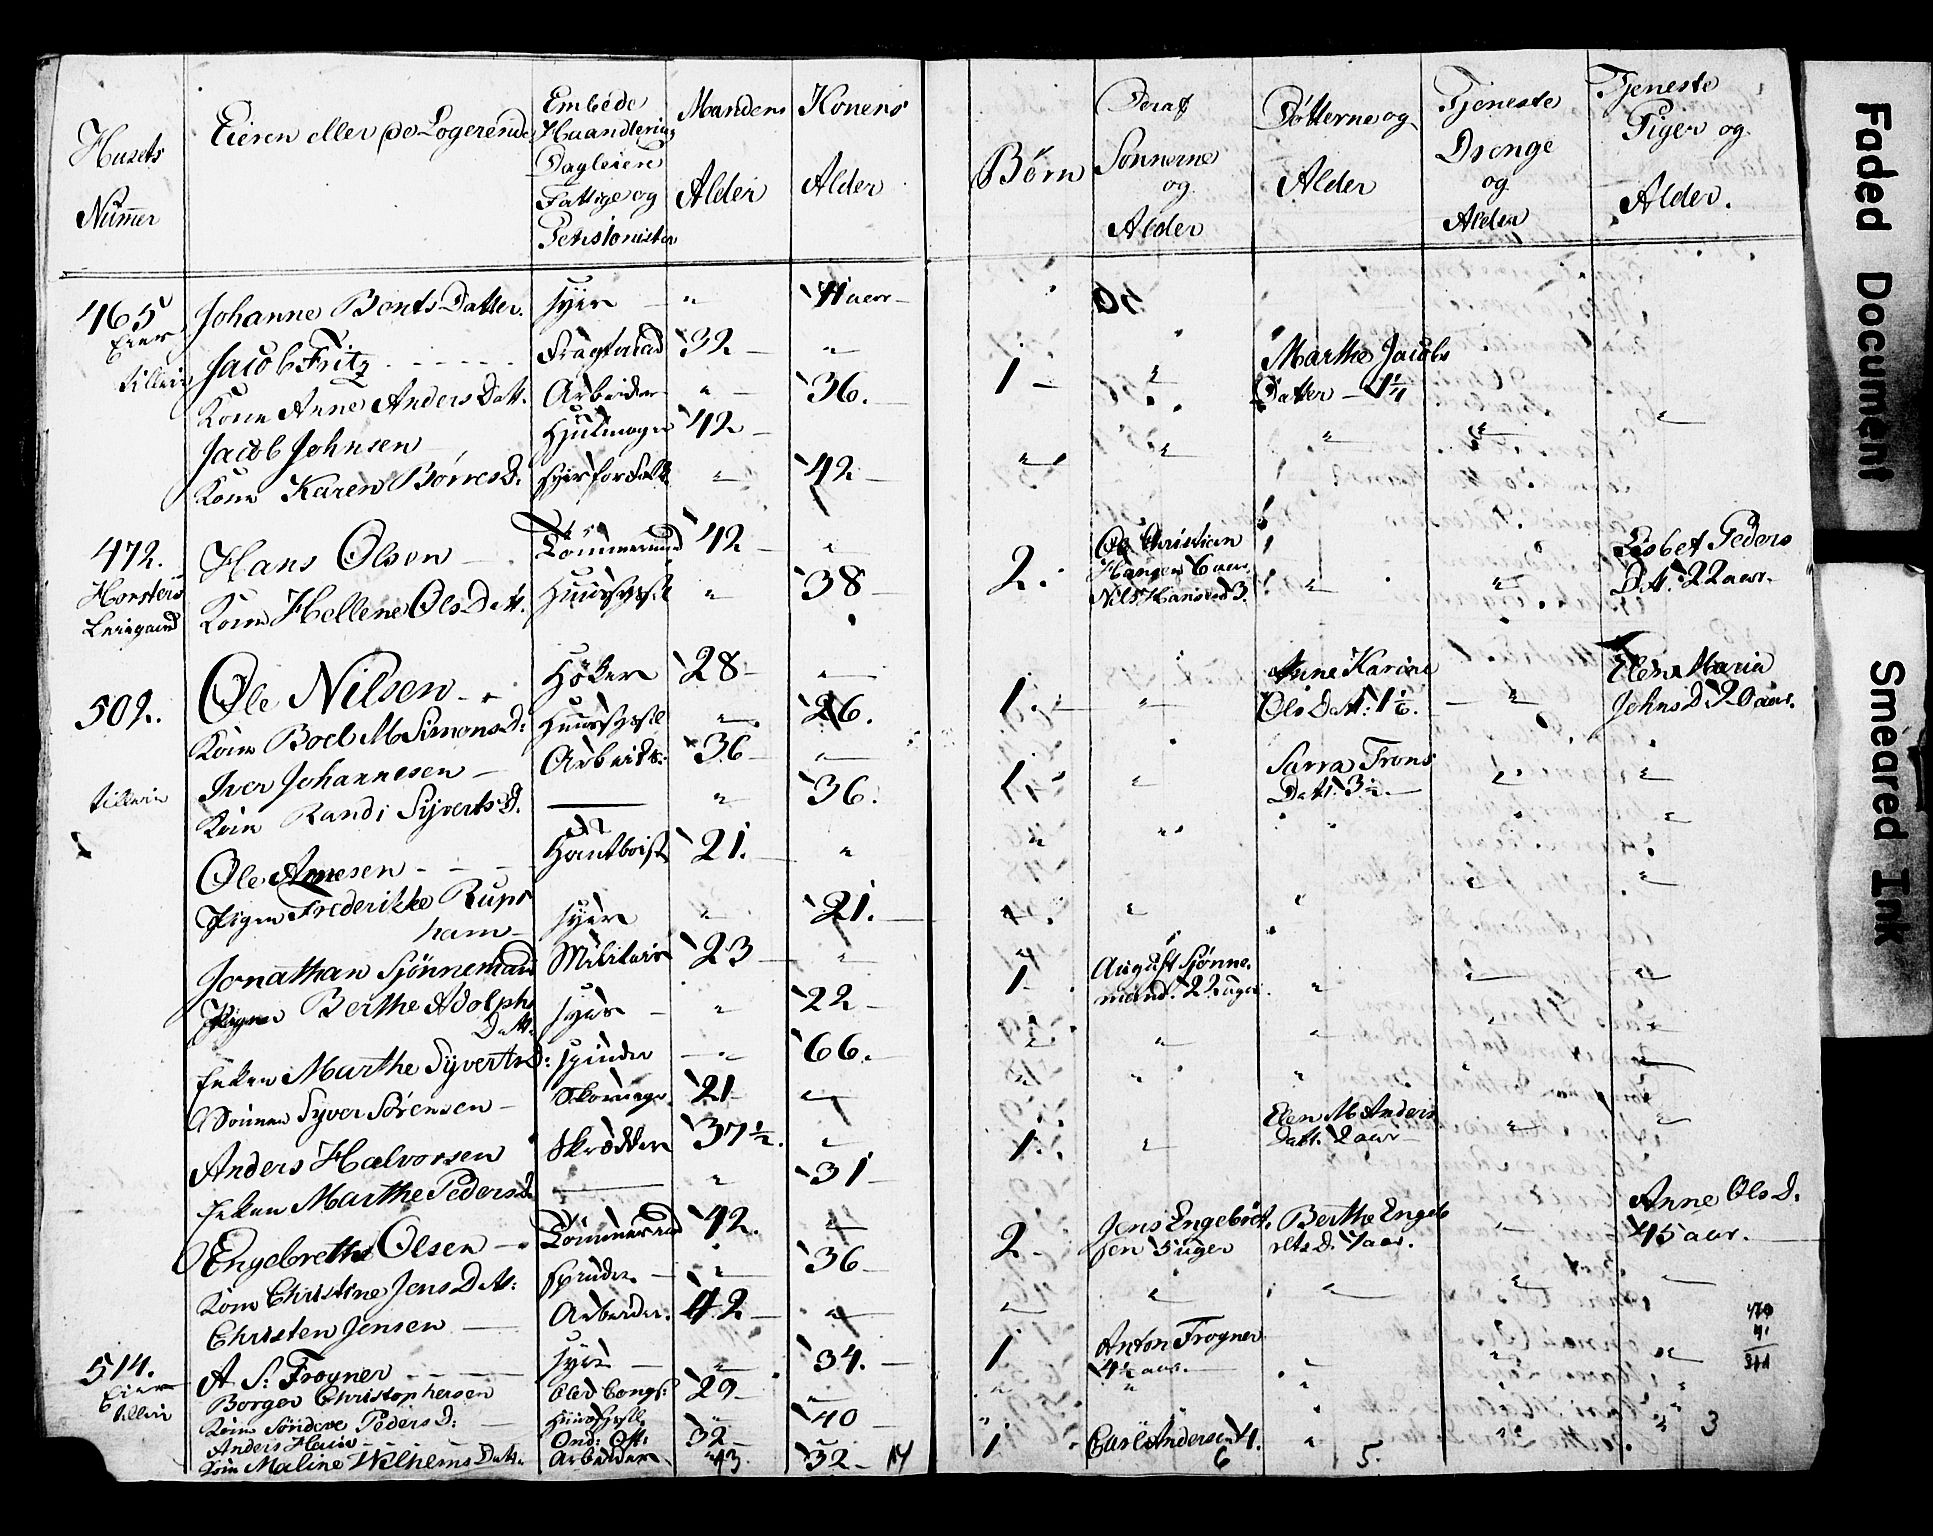 Husets
Nummer
Eieren eller de Logerende
Embede
Haandtering
Dagleiere
Fattige og
Pensionister
Mandens
Alder
Konens
Alder
Børn
Deraf
Sønnerne
og
Alder
Døtterne og
Alder
Tjeneste
Drenge
og
Alder
Tjeneste
Piger og
Alder.
465 Johanne Bents Datter. syer — " 41 aar —
Eier
tilleie Jacob Fritz - - - - - Fragtmand 32 — " 1 — " Marthe Jacobs
Datter — 1 1/4
Kone Anne Anders Datt. Arbeider " — 36.
Jacob Johnsen — Hjulmager 42 — " " " "
Kone Karen Børresd. syer for Folk " 42 —
472. Hans Olsen — Tømmermand 42 — " 2. Ole Christian
Hansen 6 aar
Nils Hansen 3. " " Lisbet Peders
Dt. 22 aar.
Kone Hellene Ols Datt. Huusgsl " 38 —
502. Ole Nilsen - . Høker 28 — " 1. — " Anne Karine
Ols Datt: 1 1/6. — " — Elen Maria
Johns D 20 aar.
Kone Boel M Simons D: " 26.
tilleie Iver Johannesen — Arbeider: 36 — " 1 " Sarra Frons
Datt. 3 1/2. — " "
Kone Randi Syverts D. — " 36.
Ole Arnesen - - - Hautboist 21. — "
Pigen Frederikke Rups
ham — syer " 21. —
Jonathan Sjønnemand Militair 23 — " 1 — August Sjønne-
mand. 22 uger. " " "
Pigen Berthe Adolphs
Datt. syer — " 22 —
Enken Marthe Syverts D: spinder — " 66.
Sønnen Syver Sørensen — Skomager 21 — "
Anders Halvorsen Skrædder 37 1/2. " 1. " Elen M Anders
Datt. 2 aar — " "
Enken Marthe Peders D. — " 31 —
Engebrethe Olsen — Tømmermand 42. " 2 — Jens Engebret-
sen 5 uger Berthe Engeb
rets D. 4 aar. " Anne Ols D.
45 aar. —
Kone Christine Jens Datt: spinder — " 36 —
Christen Jensen — Arbeider. 42 — "
514. A. S: Frogner - - - syer — " 34. — 1 Anton Frogner
4 1/2 aar. — " " "
Eier
tilleie Borger Christophersen 29 — "
Kone Sønderve Peders D: — " 40 —
Anders Hansen — 32 — " 1 Carl Andersen 4. " " "
Kone Maline Wilhelms Datt. Arbeider " 32 —
13 14 6 5. 3